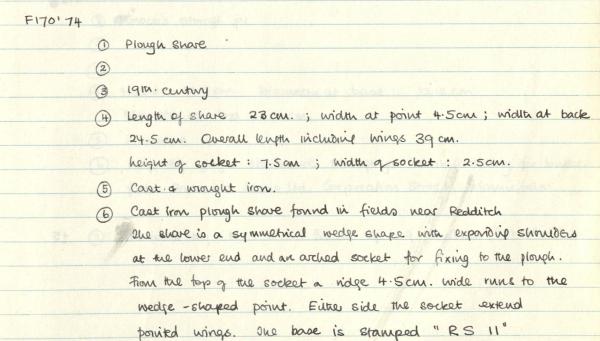 F170'74
① Plough share
②
③ 19th. century
④ Length of share 23cm. ; width at point 4.5cm ; width at back
24.5 cm. Overall length including wings 39cm.
height of socket : 7.5cm ; width of socket : 2.5cm.
⑤ Cast & wrought iron.
⑥ Cast iron plough share found in fields near Redditch
The share is a symmetrical wedge shape with expanding shoulders
at the lower end and an arched socket for fixing to the plough.
From the top of the socket a ridge 4.5cm. wide runs to the
wedge-shaped point. Either side the socket extend
pointed wings. The base is stamped "RS 11"